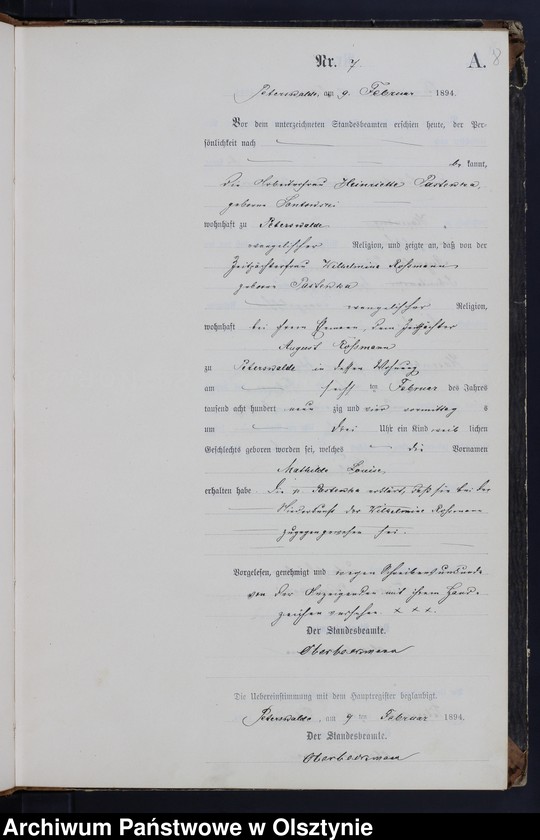 Nr. 7.
A. 8
Peterswalde, am 9. Februar 1894.
Vor dem unterzeichneten Standesbeamten erschien heute, der Per-
sönlichkeit nach
be kannt,
die Arbeiterfrau Heinriette Pastewka,
geborne
wohnhaft zu Peterswalde
evangelischer Religion, und zeigte an, daß von der
Zeitpächterfrau Wilhelmine Roßmann
geborne Pastewka
evangelischer Religion,
wohnhaft bei ihrem Ehemann, dem Zeitpächter
August Roßmann
zu Peterswalde in dessen Wohnung
am ten Februar des Jahres
tausend acht hundert neun zig und vier vormittag s
um drei Uhr ein Kind weib lichen
Geschlechts geboren worden sei, welches die Vornamen
Mathilde Louise,
erhalten habe. Die p. Pastewka erklärt, daß sie bei der
Niederkunft der Wilhelmine Roßmann
zugegen gewesen sei.
Vorgelesen, genehmigt und wegen Schreibensunkunde
von der Anzeigenden mit ihrem Hand-
zeichen versehen + + +.
Der Standesbeamte.
Die Uebereinstimmung mit dem Hauptregister beglaubigt.
Peterswalde, am 9 ten Februar 1894.
Der Standesbeamte.
Archiwum Państwowe w Olsztynie